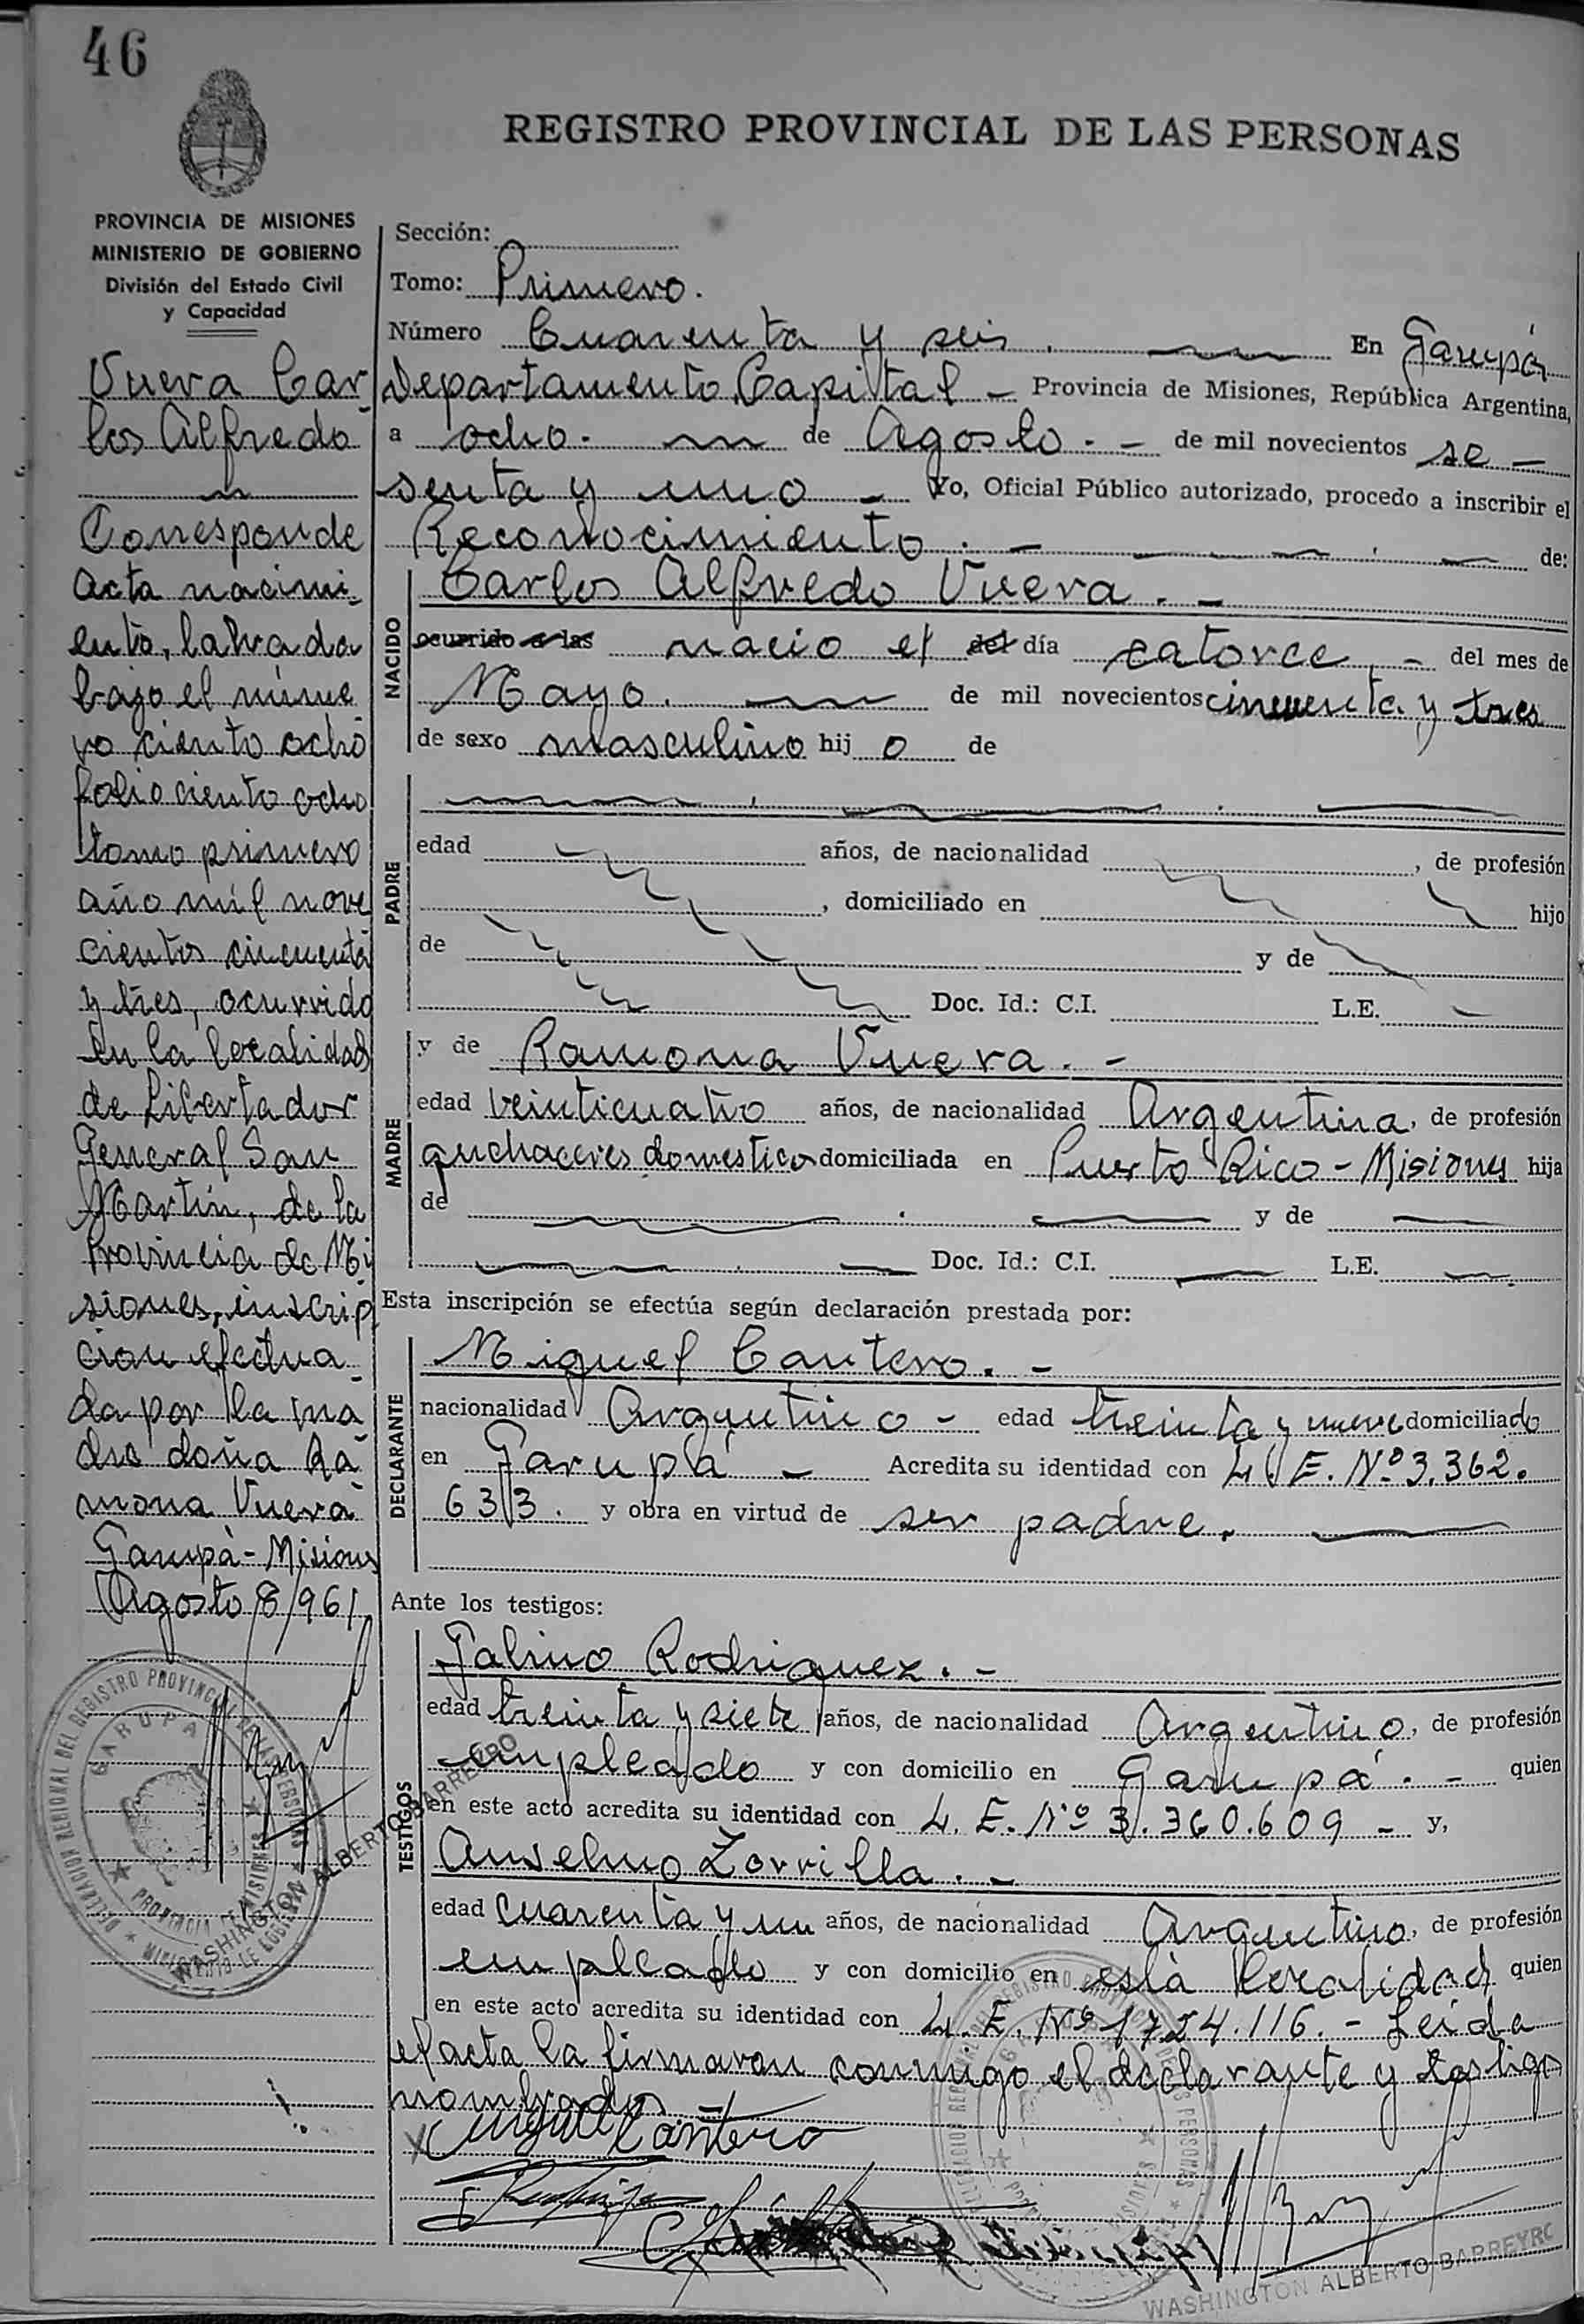 46
REGISTRO PROVINCIAL DE LAS PERSONAS
PROVINCIA DE MISIONES
MINISTERIO DE GOBIERNO
División del Estado Civil
y Capacidad
Vuera Car
los Alfredo
Corresponde
acta nacimi
ento, labrada
bajo el núme
ro ciento ocho
folio ciento ocho
tomo primero
año mil nove
cientos cincuenta
y tres, ocurrido
en la localidad
de Libertador
General San
Martin, de la
Provincia de Mi
siones, inscrip
cion efectua
da por la ma
dre doña Ra
mona Vuera
Garupá - Misiones
Agosto 8/961
Sección:
Tomo: Primero.
Número Cuarenta y seis. En Garupá
Departamento Capital - Provincia de Misiones, República Argentina,
a ocho. de Agosto. - de mil novecientos se -
senta y uno - Yo, Oficial Público autorizado, procedo a inscribir el
Reconocimiento. - de:
NACIDO
Carlos Alfredo Vuera. -
ocurrido a las nacio el del día catorce - del mes de
Mayo. de mil novecientos cincuenta y tres
de sexo masculino hij o de
PADRE
edad años, de nacionalidad , de profesión
, domiciliado en hijo
de y de
Doc. Id.: C.I. L.E.
MADRE
y de Ramona Vuera. -
edad veinticuatro años, de nacionalidad Argentina, de profesión
quehaceres domestico domiciliada en Puerto Rico - Misiones hija
de y de
Doc. Id.: C.I. L.E.
Esta inscripción se efectúa según declaración prestada por:
DECLARANTE
Miguel Cantero. -
nacionalidad Argentino - edad treinta y nueve domiciliado
en Garupá - Acredita su identidad con L.E. Nº 3.362.
633. y obra en virtud de ser padre.
Ante los testigos:
TESTIGOS
Galino Rodriguez. -
edad treinta y siete años, de nacionalidad Argentino, de profesión
empleado y con domicilio en Garupá. - quien
en este acto acredita su identidad con L.E. Nº 3.360.609 - y,
Anselmo Zorrilla. -
edad cuarenta y un años, de nacionalidad Argentino, de profesión
empleado y con domicilio en esta localidad quien
en este acto acredita su identidad con L.E. Nº 1724.116. - Leida
el acta la firmaron conmigo el declarante y testigo
nombrados -
Miguel Cantero
GARUPA
PROVINCIA DE MISIONES
WASHINGTON ALBERTO BARREYRO
WASHINGTON ALBERTO BARREYRO